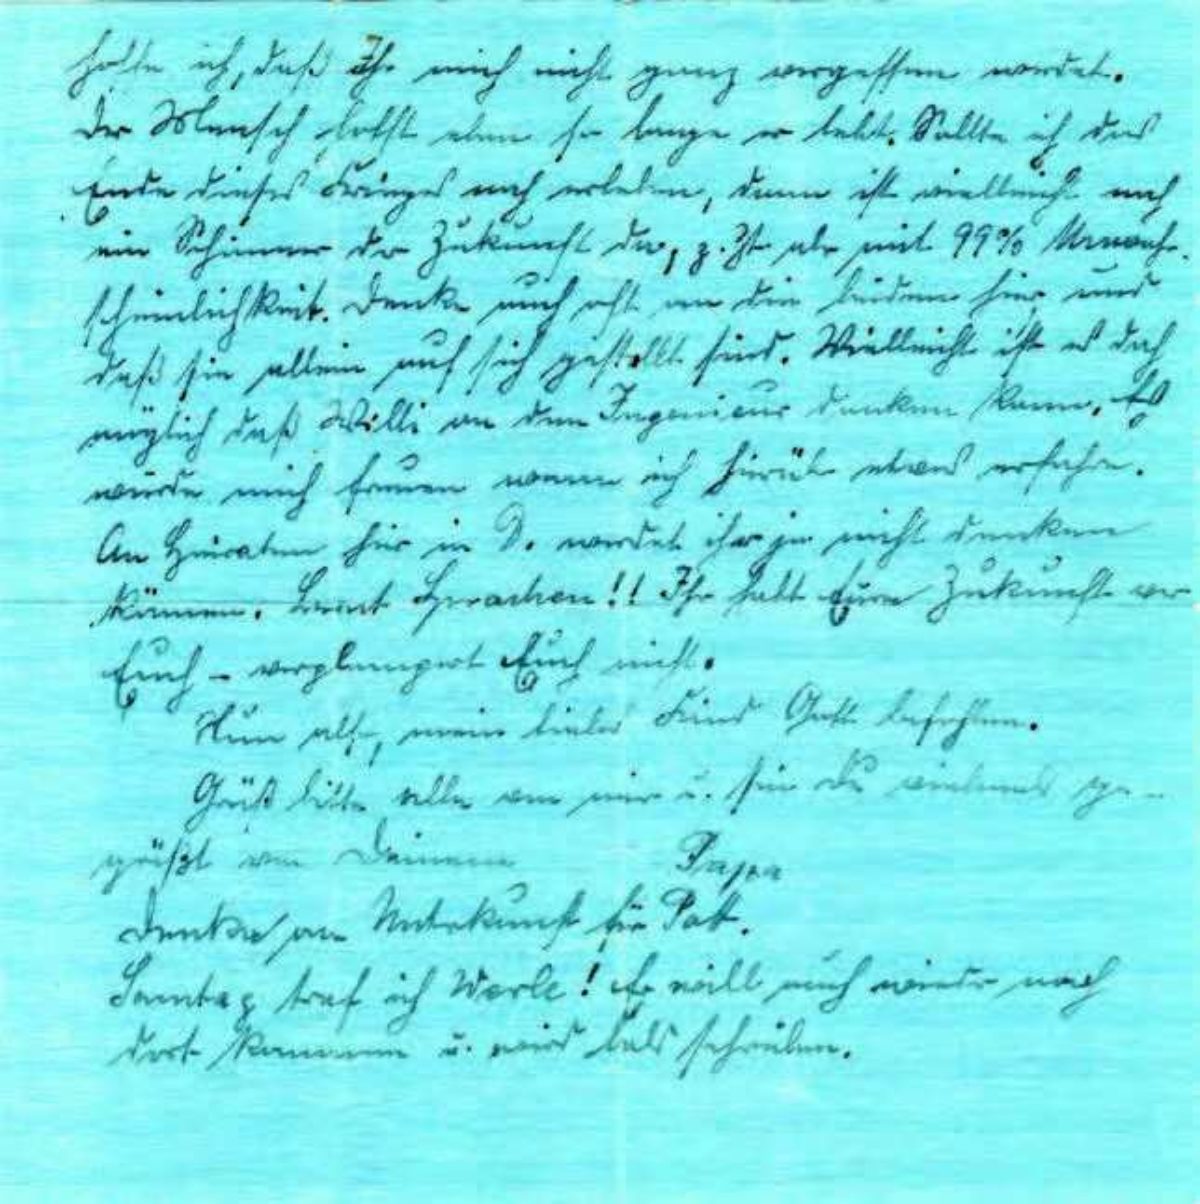 hoffe ich, daß Ihr mich nicht ganz vergessen werdet.
Der Mensch hofft eben so lange er lebt. Sollte ich das
Ende dieses Krieges noch erleben, dann ist vielleicht noch
ein Schimmer der Zukunft da, z. Zt. aber mit 99% Unwahr-
scheinlichkeit. Denke auch oft an die beiden hier und
daß sie allein auf sich gestellt sind. Vielleicht ist es doch
möglich daß Willi an den Ingenieur denken kann. Es
würde mich freuen wenn ich hierüber etwas erfahre.
An Heiraten hier in D. werdet ihr ja nicht denken
können. Lernt Sprachen!! Ihr habt Eure Zukunft vor
Euch – verplempert Euch nicht.
Nun also, mein liebes Kind Gott befohlen.
Grüß bitte alle von mir u. sei Du vielmals ge-
grüßt von Deinem Pappa
Denke an Unterkunft für Patt.
Sonntag traf ich Werle! Er will auch wieder nach
dort kommen u. wird bald schreiben.